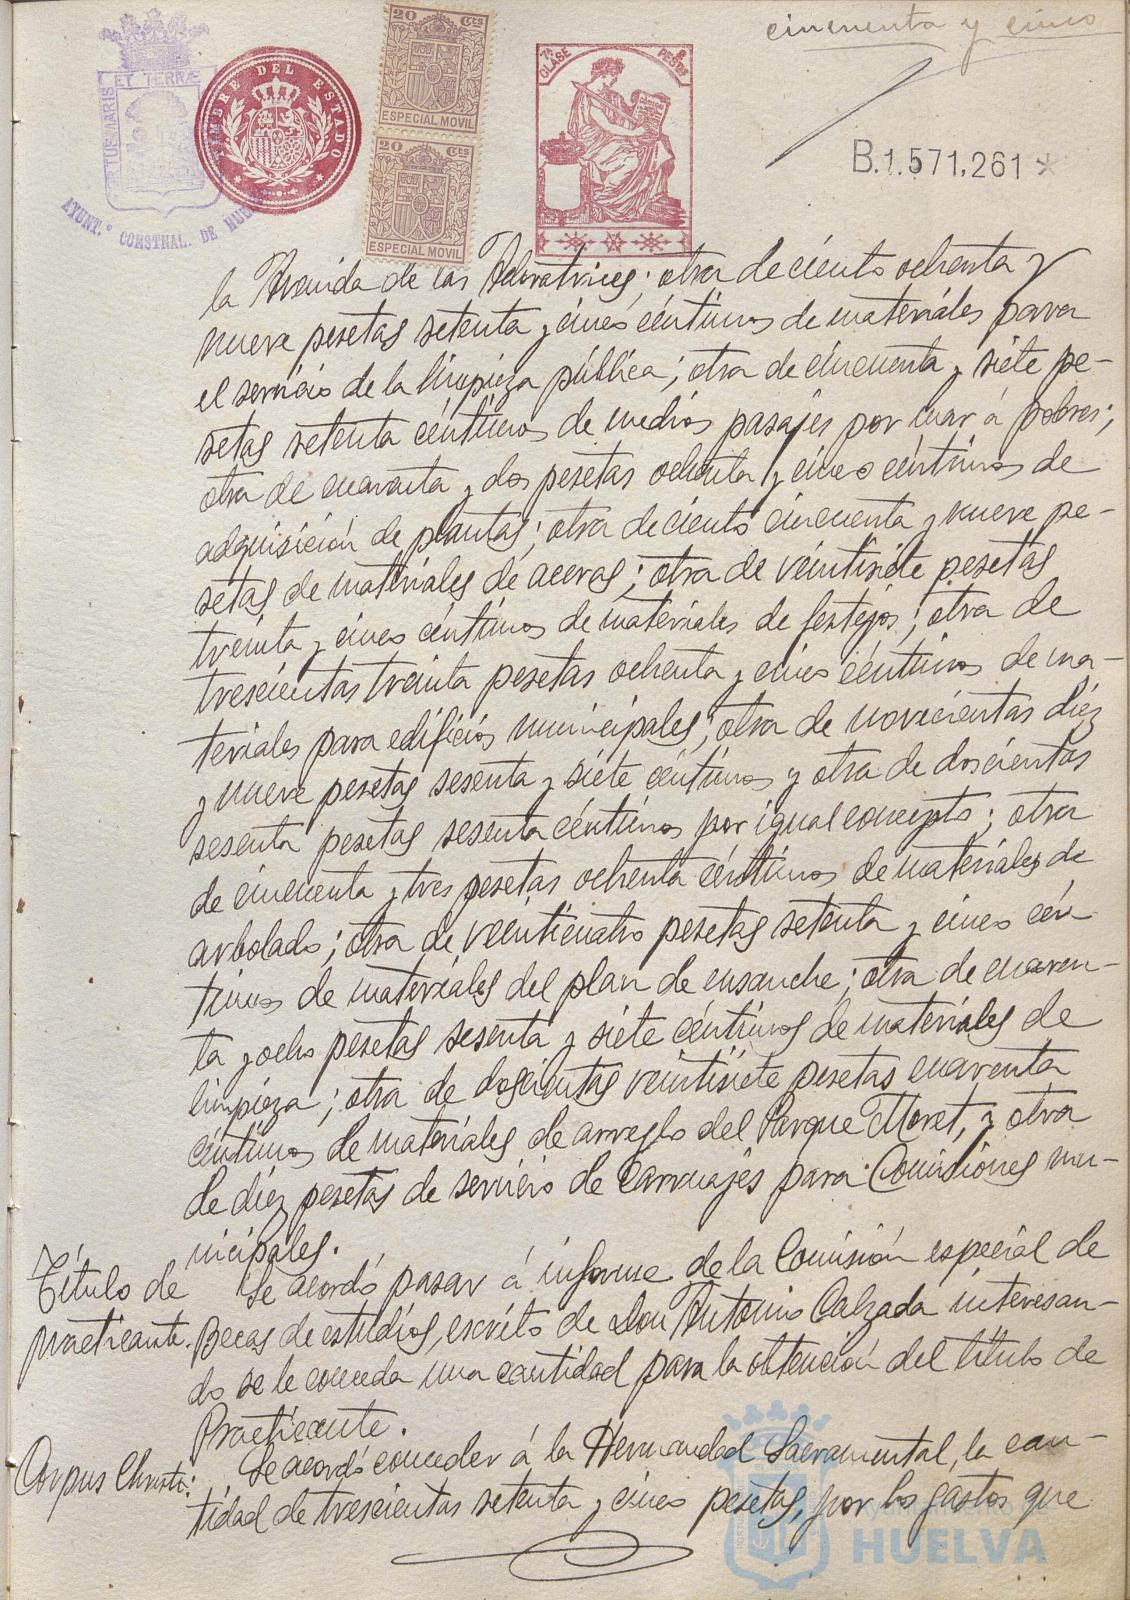 cincuenta y cinco
PORTUS MARIS ET TERRÆ
AYUNT.º CONSTNAL. DE HUELVA
TIMBRE DEL ESTADO
20 Cts
ESPECIAL MOVIL
20 Cts
ESPECIAL MOVIL
7ª CLASE
8 PESETAS
B.1.571.261 *
la Avenida de las Adoratrices; otra de ciento ochenta y
nueve pesetas setenta y cinco céntimos de materiales para
el servicio de la limpieza pública; otra de cincuenta y siete pe-
setas setenta céntimos de medios pasajes por mar á pobres;
otra de cuarenta y dos pesetas ochenta y cinco céntimos de
adquisición de plantas; otra de ciento cincuenta y nueve pe-
setas de materiales de aceras; otra de veintisiete pesetas
treinta y cinco céntimos de materiales de festejos; otra de
trescientas treinta pesetas ochenta y cinco céntimos de ma-
teriales para edificios municipales; otra de novecientas diez
y nueve pesetas sesenta y siete céntimos y otra de doscientas
sesenta pesetas sesenta céntimos por igual concepto; otra
de cincuenta y tres pesetas ochenta céntimos de materiales de
arbolado; otra de veinticuatro pesetas setenta y cinco cén
timos de materiales del plan de ensanche; otra de cuaren-
ta y ocho pesetas sesenta y siete céntimos de materiales de
limpieza; otra de doscientas veintisiete pesetas cuarenta
céntimos de materiales de arreglo del Parque Moret, y otra
de diez pesetas de servicio de carruajes para Comisiones mu-
nicipales.
Título de practicante.
Se acordó pasar á informe de la Comisión especial de
Becas de estudios, escrito de Don Antonio Calzada interesan-
do se le conceda una cantidad para la obtención del título de
Practicante.
Corpus Christi:
Se acordó conceder á la Hermandad Sacramental, la can-
tidad de trescientas setenta y cinco pesetas, por los gastos que
Ayuntamiento de
HUELVA